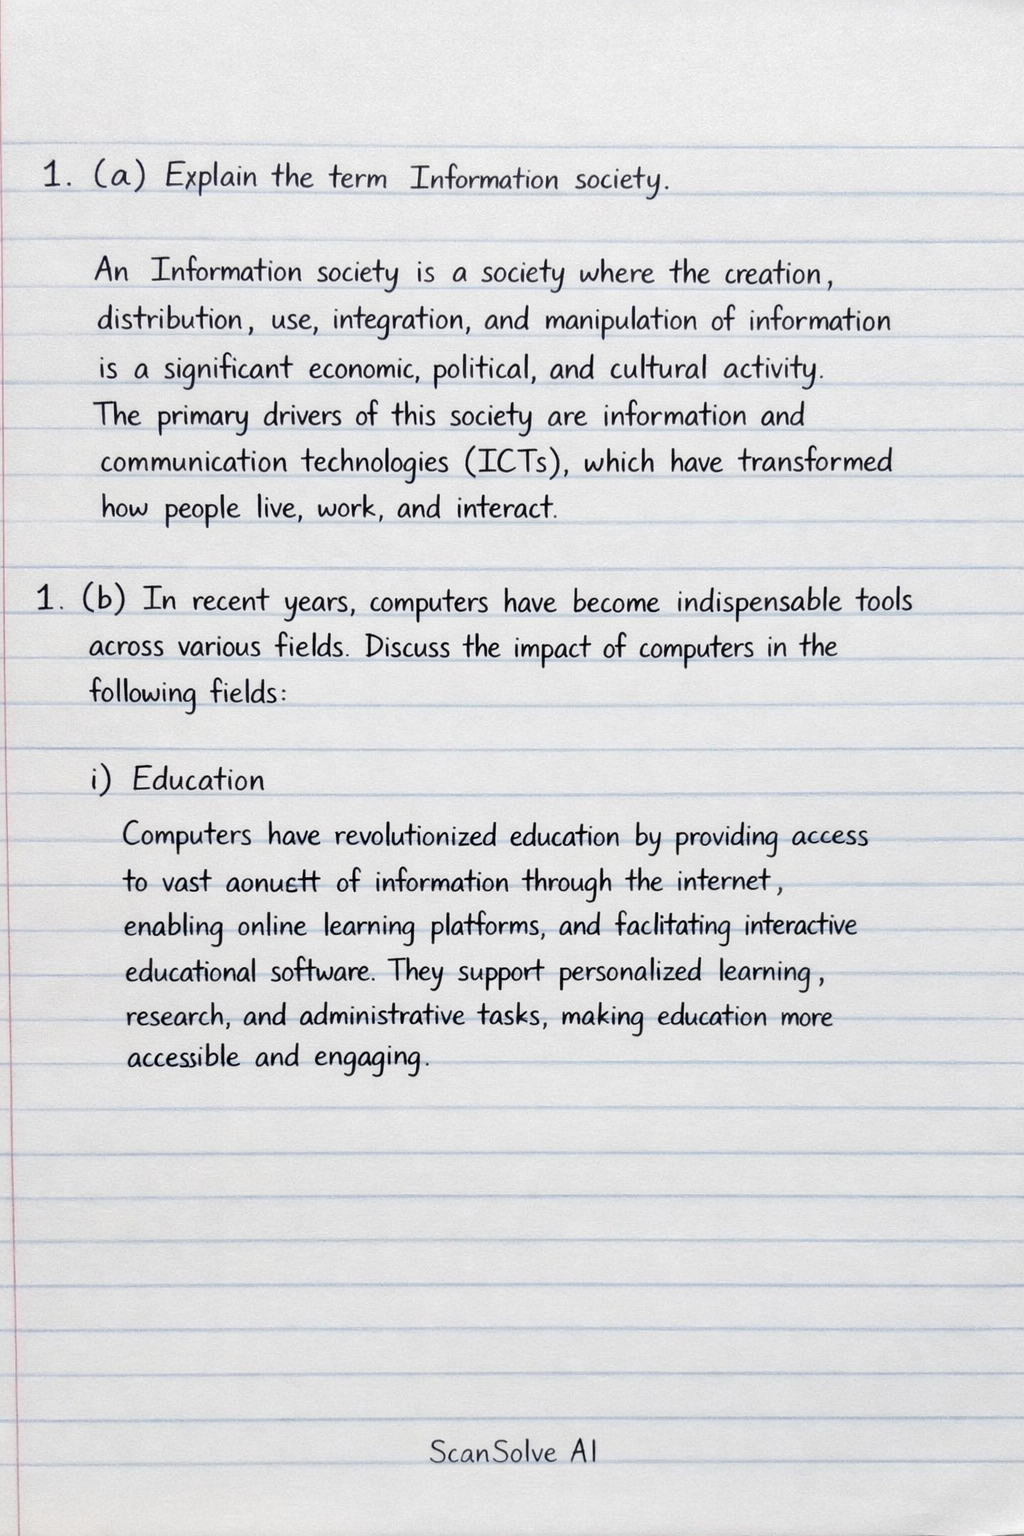 1. (a) Explain the term Information society.
An Information society is a society where the creation,
distribution, use, integration, and manipulation of information
is a significant economic, political, and cultural activity.
The primary drivers of this society are information and
communication technologies (ICTs), which have transformed
how people live, work, and interact.
1. (b) In recent years, computers have become indispensable tools
across various fields. Discuss the impact of computers in the
following fields:
i) Education
Computers have revolutionized education by providing access
to vast of information through the internet,
enabling online learning platforms, and faclitating interactive
educational software. They support personalized learning,
research, and administrative tasks, making education more
accessible and engaging.
ScanSolve AI